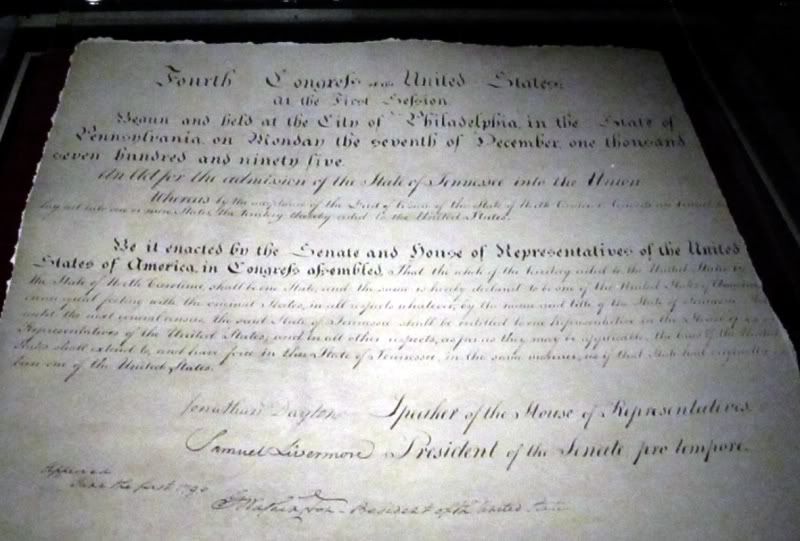 Fourth Congress of the United States:
at the First Session
Begun and held at the City of Philadelphia, in the State of
Pennsylvania, on Monday the seventh of December, one thousand
seven hundred and ninety five.
An Act for the admission of the State of Tennessee into the Union
Whereas by the of the Deed of of the State of North
lay out into one or more States, the territory thereby ceded to the United States.
Be it enacted by the Senate and House of Representatives of the United
States of America, in Congress assembled, That the whole of the territory ceded to the United States by
the State of North Carolina, shall be one State, and the same is hereby declared to be one of the United States of America,
equal footing with the original States, in all respects whatever, by the name and title of the State of Tennessee. That
until the next general census, the said State of Tennessee shall be entitled to one Representative in the House of
Representatives of the United States; and in all other respects, as far as they may be applicable, the laws of the United
States shall extend to, and have force in the State of Tennessee, in the same manner, as if that State had originally
been one of the United States.
Jonathan Dayton Speaker of the House of Representatives.
Samuel Livermore President of the Senate pro tempore.
Approved
June the first
President of the United States